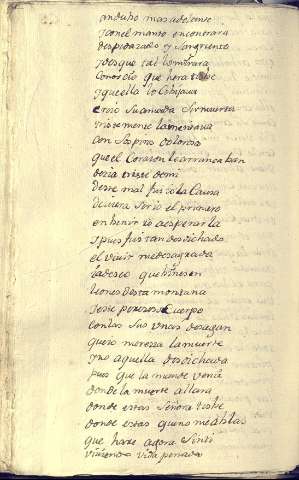 andubo mas adelante
y con el manto encontrara
despedazado y sangriento
y desque tal lo mirara
Conoscio que hera tisbe
y que ella lo Cobijava
creio su amada ser muerta
tristemente lamentava
con sospiros dolorosos
que el Corazon le arrancaban
dezia triste de mi
deste mal fui io la Causa
deviera ser io el primero
en benir io a esperarla
y pues fui tan desdichado
el vivir me desagrada
la deseo que binesen
leones desta montana
y este Cuerpo
con las sus unas desagan
quero merezca la muerte
y no aquella desdichada
pues que la mande venir
donde la muerte allara
donde estas señora tisbe
donde estas que no me ablas
que hare agora sin ti
viviendo vida penada